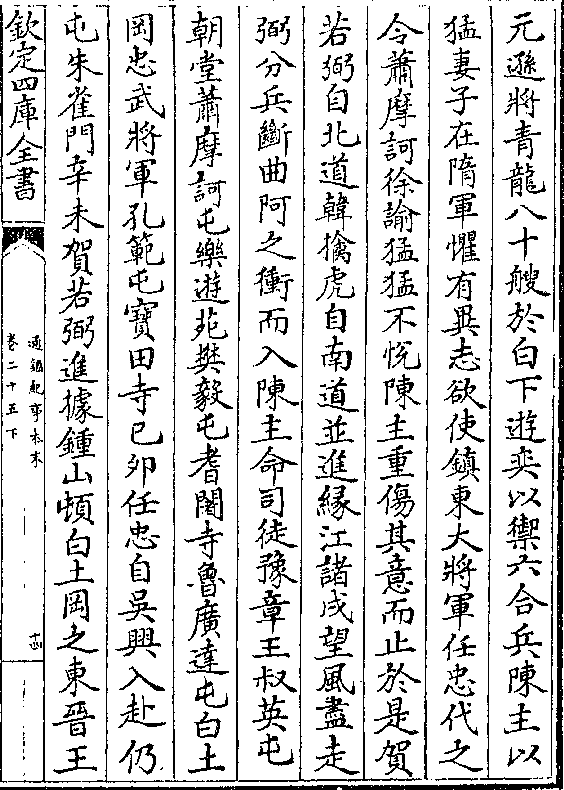 元遜將青龍八十艘於白下遊奕以禦六合兵陳主以
猛妻子在隋軍懼有異志欲使鎮東大將軍任忠代之
令蕭摩訶徐諭猛猛不悅陳主重傷其意而止於是賀
若弼自北道韓擒虎自南道並進縁江諸戍望風盡走
弼分兵斷曲阿之衝而入陳主命司徒豫章王叔英屯
朝堂蕭摩訶屯樂遊苑樊毅屯耆闍寺魯廣達屯白土
岡忠武將軍孔範屯寶田寺己卯任忠自吳興入赴仍
屯朱雀門辛未賀若弼進據鍾山頓白土岡之東晉王
欽定四庫全書
通鑑紀事本末
卷二十五下
十四